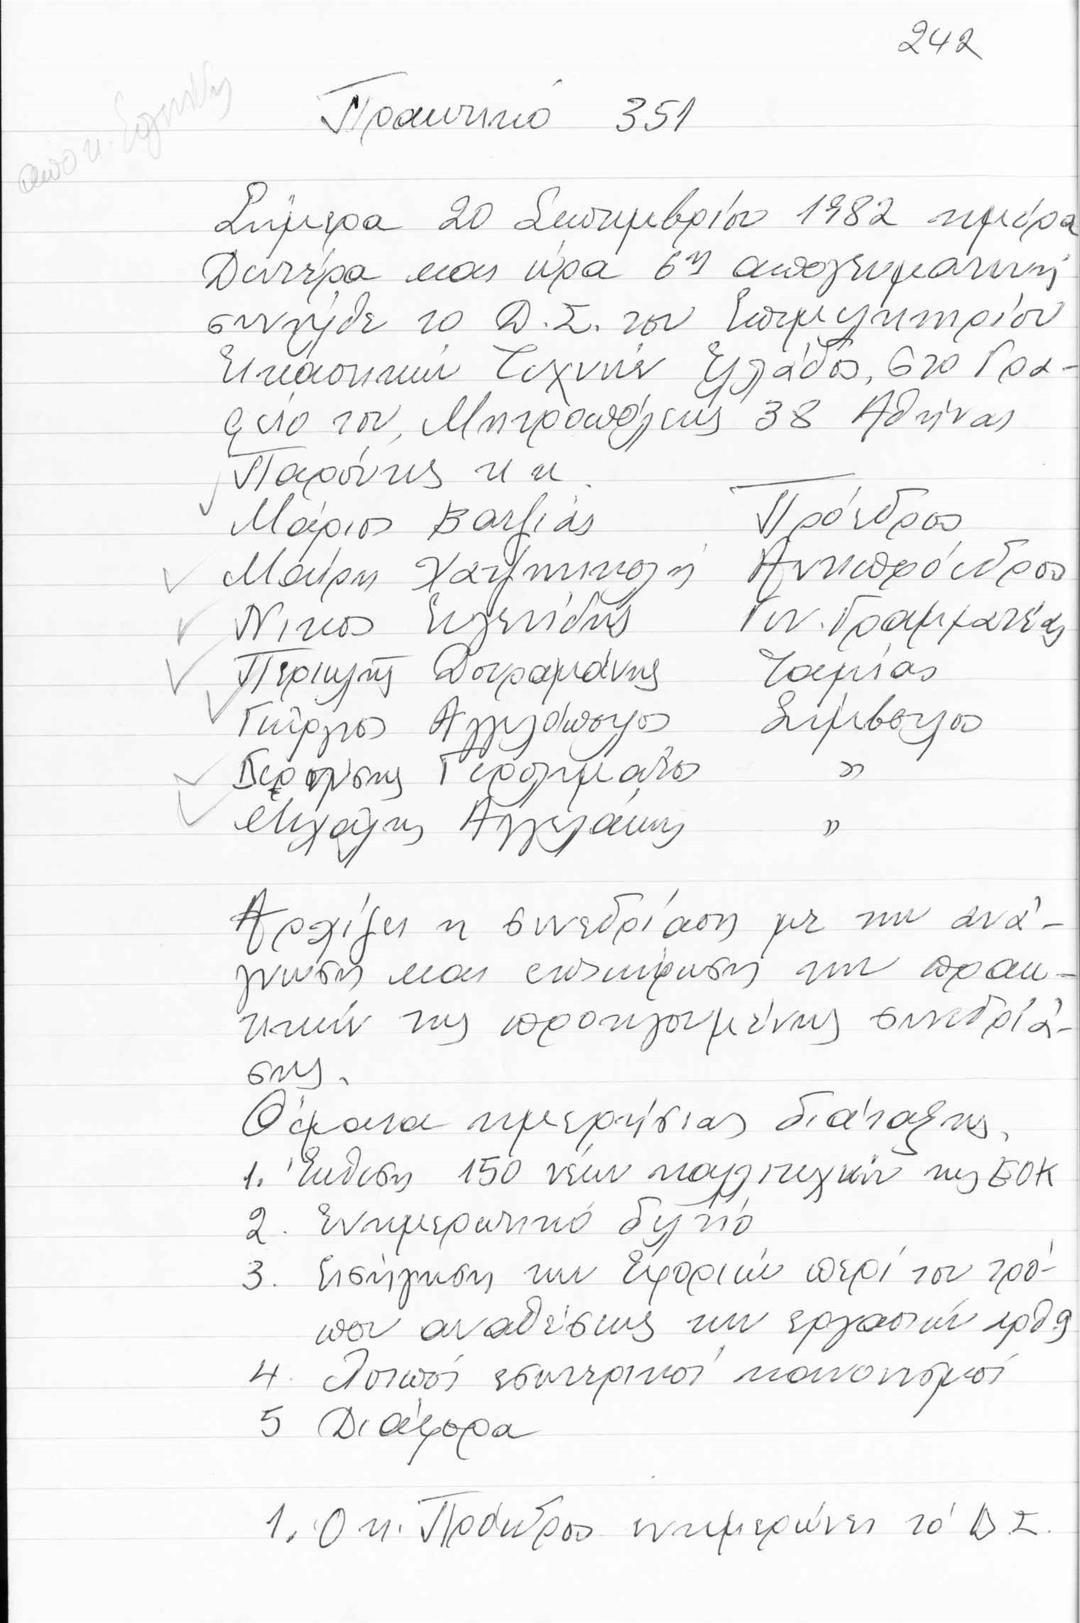 242
Πρακτικό 351
από κ.
Σήμερα 20 Σεπτεμβρίου 1982 ημέρα
Δευτέρα και ώρα 6η απογευματινή
συνήλθε το Δ.Σ. του Επιμελητηρίου
Εικαστικών Τεχνών Ελλάδος, στο Γρα-
φείο του, Μητροπόλεως 38 Αθήνας
Παρόντες κ κ.
Μάριος Βατζιάς Πρόεδρος
Μαίρη Χατζηνικολή Αντιπρόεδρος
Νίκος Ευγενίδης Γεν. Γραμματέας
Περικλής Δουραμάνης Ταμίας
Γιώργος Αγγελόπουλος Σύμβουλος
Γερολυμάτος "
Μιχάλης Αγγελάκης "
Αρχίζει η συνεδρίαση με την ανά-
γνωση και επικύρωση των πρακ-
τικών της προηγουμένης συνεδριά-
σης.
Θέματα ημερήσιας διάταξης.
1. Έκθεση 150 νέων καλλιτεχνών της ΕΟΚ
2. Ενημερωτικό δελτίο
3. Εισήγηση των Εφοριών περί του τρό-
που αναθέσεως των εργασιών αρθ 9
4. Λοιποί εσωτερικοί κανονισμοί
5 Διάφορα
1. Ο κ. Πρόεδρος ενημερώνει τό Δ Σ.